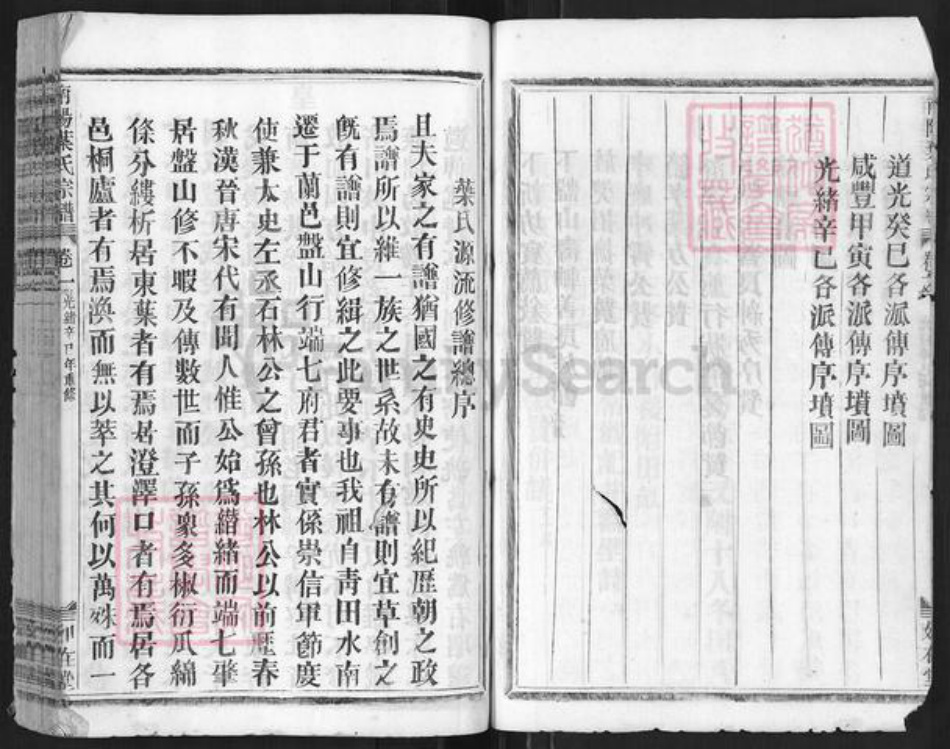 道光癸巳各派傳序墳圖
咸豐甲寅各派傳序墳圖
光緒辛巳各派傳序墳圖
葉氏源流修譜總序
且夫家之有譜猶國之有史史所以紀歷朝之政
焉譜所以維一族之世系故未有譜則宜草創之
旣有譜則宜修緝之此要事也我祖自靑田水南
遷于蘭邑盤山行端七府君者實係崇信軍節度
使兼太史左丞石林公之曾孫也林公以前歷春
秋漢晉唐宋代有聞人惟公始爲繒緒而端七肇
居盤山修不暇及傳數世而子孫衆多椒衍瓜綿
條分縷析居東葉者有焉居澄澤口者有焉居各
邑桐廬者有焉渙而無以萃之其何以萬殊而一
南陽葉氏宗譜
卷一
光緒辛巳年重修
如在堂
MySearch